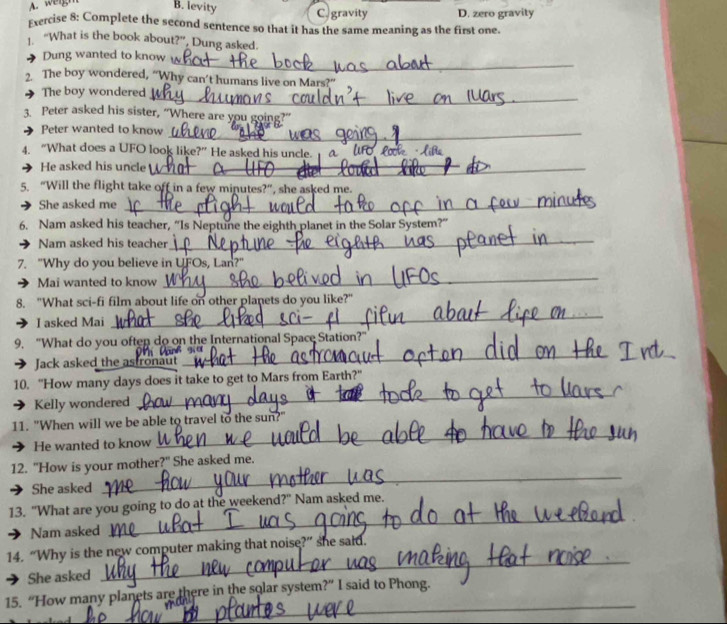 A. weight B. levity C. gravity D. zero gravity
Exercise 8: Complete the second sentence so that it has the same meaning as the first one.
1. "What is the book about?", Dung asked.
→ Dung wanted to know what the book was about
2. The boy wondered, "Why can't humans live on Mars?"
→ The boy wondered why humans couldn't live on Mars.
3. Peter asked his sister, "Where are you going?"
→ Peter wanted to know where she was going.
4. "What does a UFO look like?" He asked his uncle. a UFO look like
→ He asked his uncle what a UFO looked like
5. "Will the flight take off in a few minutes?", she asked me.
→ She asked me if the flight would take off in a few minutes
6. Nam asked his teacher, "Is Neptune the eighth planet in the Solar System?"
→ Nam asked his teacher if Neptune the eighth was planet in
7. "Why do you believe in UFOs, Lan?"
→ Mai wanted to know why she belived in UFOs
8. "What sci-fi film about life on other planets do you like?"
→ I asked Mai what she liked sci-fi film about life on
9. "What do you often do on the International Space Station?"
→ Jack asked the astronaut what the astronaut often did on the Int
10. "How many days does it take to get to Mars from Earth?"
→ Kelly wondered how many days it took to get to Mars
11. "When will we be able to travel to the sun?"
→ He wanted to know when we would be able to have to the sun
12. "How is your mother?" She asked me.
→ She asked me how your mother was
13. "What are you going to do at the weekend?" Nam asked me.
→ Nam asked me what I was going to do at the weekend
14. "Why is the new computer making that noise?" she said.
→ She asked why the new computer was making that noise.
15. "How many planets are there in the solar system?" I said to Phong.
he how many plantes were